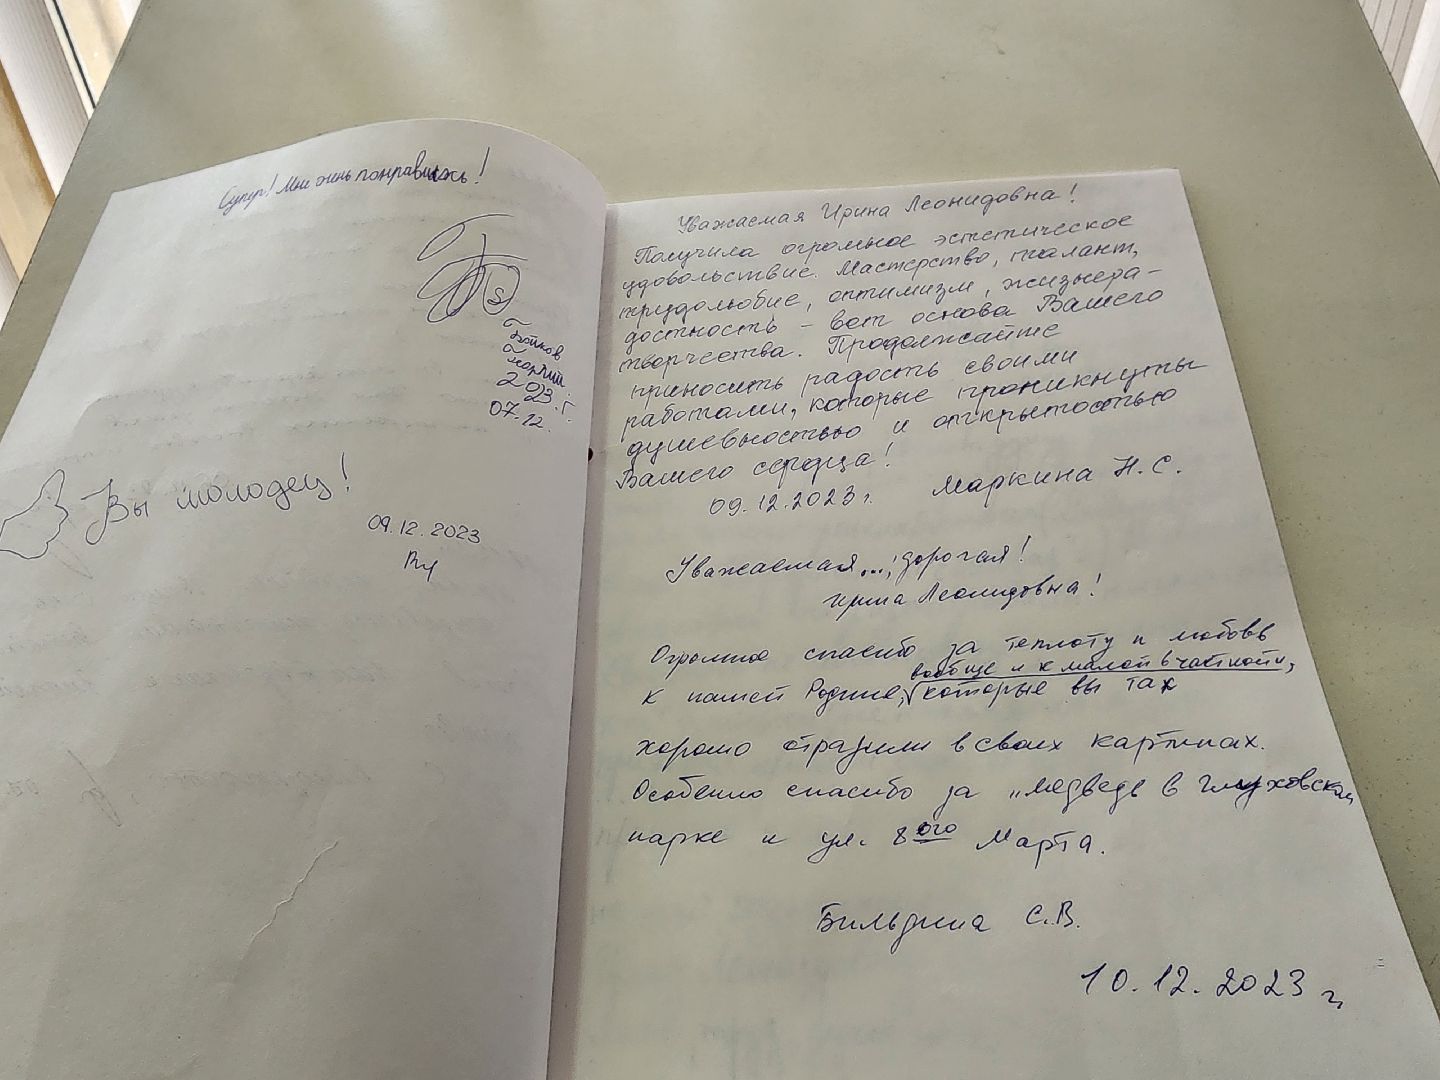 Супер! Мне очень понравилось!
Бойков
Георгий
2023 г.
07.12.
Вы молодец!
09.12.2023
Уважаемая Ирина Леонидовна!
Получила огромное эстетическое
удовольствие. Мастерство, талант,
трудолюбие, оптимизм, жизнера-
достность – вот основа Вашего
творчества. Продолжайте
приносить радость своими
работами, которые проникнуты
душевностью и открытостью
Вашего сердца!
09.12.2023 г. Маркина Н.С.
Уважаемая..., дорогая!
Ирина Леонидовна!
Огромное спасибо за теплоту и любовь
вообще и к малой в частности,
к нашей Родине, которые вы так
хорошо отразили в своих картинах.
Особенно спасибо за „медведь в Глуховском
парке и ул. 8ого Марта.
С.В.
10.12.2023 г.